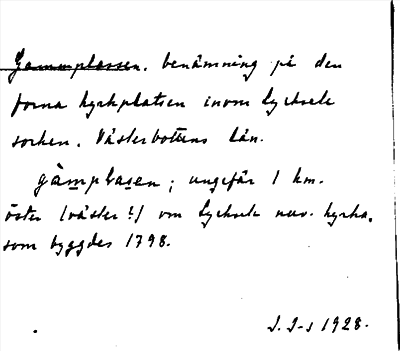 Gammplassen. benämning på den
forna kyrkplatsen inom Lycksele
socken. Västerbottens län.
gàmplasen; ungefär 1 km.
öster (väster?) om Lycksele nuv. kyrka,
som byggdes 1798.
J. J-s 1928.